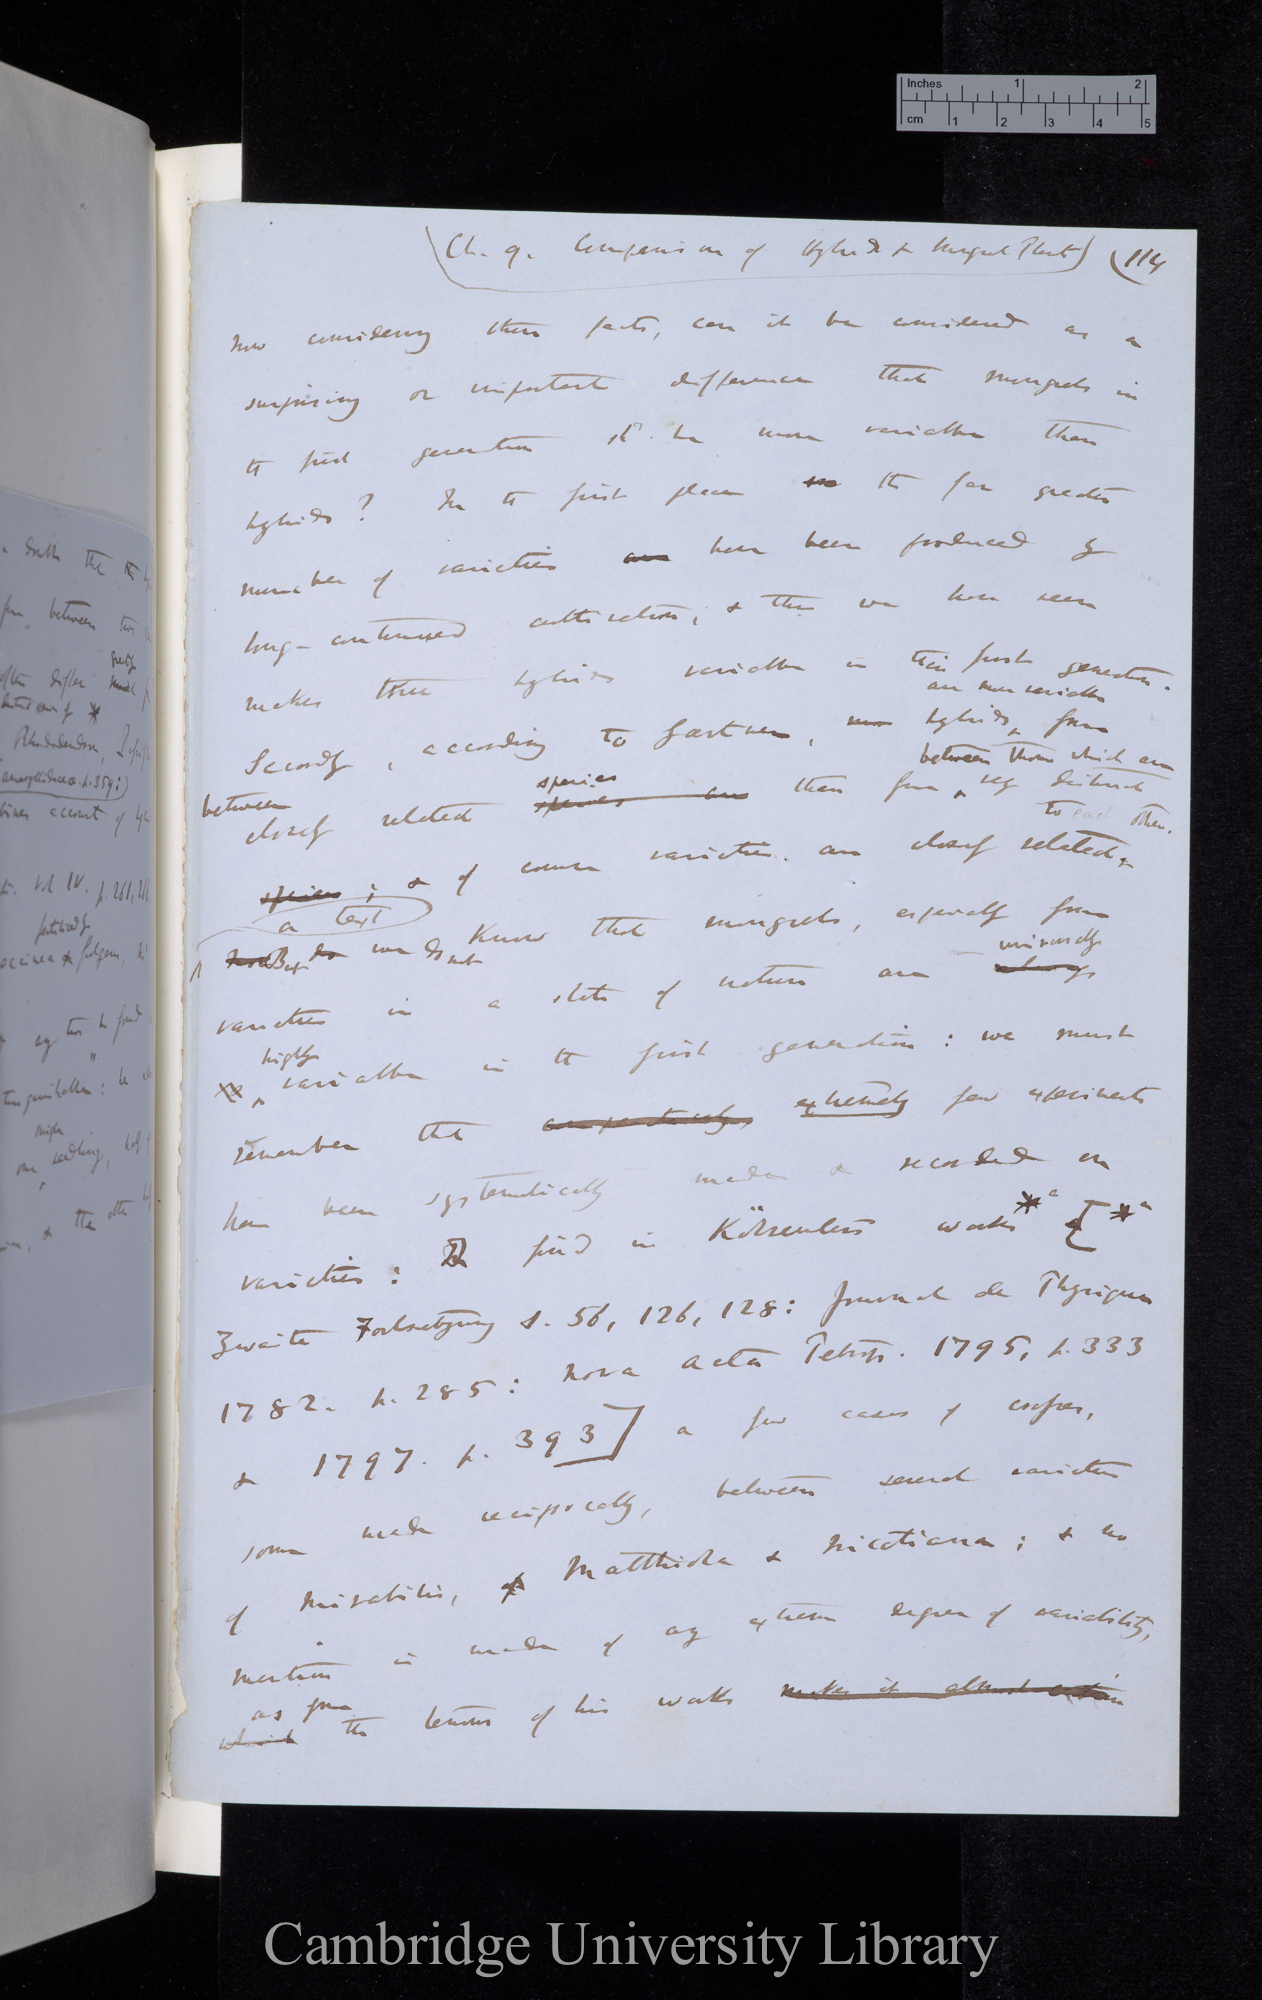 Inches 1 2
cm 1 2 3 4 5
(Ch. 9. Comparison of Hybrids & Mongrel Plants) (114
Now considering these facts, can it be considered as a
surprising or important difference that mongrels in
the first generation shd. be more variable than
hybrids? In the first place the far greater
number of varieties are have been produced by
long-continued cultivation, & this we have seen
makes these hybrids variable in their first generation.
are more variable
Secondly, according to Gærtner, more hybrids, from
between those which are
between closely related species species are than from very distinct
to each other.
species; & of course varieties are closely related
a text
Now But do we do not know that mongrels, especially from
universally
varieties in a state of nature are always
highly
variable in the first generation: we must
remember that comparatively extremely few experiments
have been systematically made & recorded on
varieties: I find in Kölreuter's works *a [*a
Zweite Fortsetzung s. 56, 126, 128: Journal de Physique
1782. p. 285: Nova Acta Petrop. 1795, p. 333
& 1797. p. 393] a few cases of crosses,
some made reciprocally, between several varieties
of Mirabilis, of Matthiola & Nicotiana; & no
mention is made of any extreme degree of variability,
as from
which the tenor of his works makes it almost certain
between two
often differ
Rhododendron,
account of
vol IV. p. 261,
seedling, half
& the other
Cambridge University Library